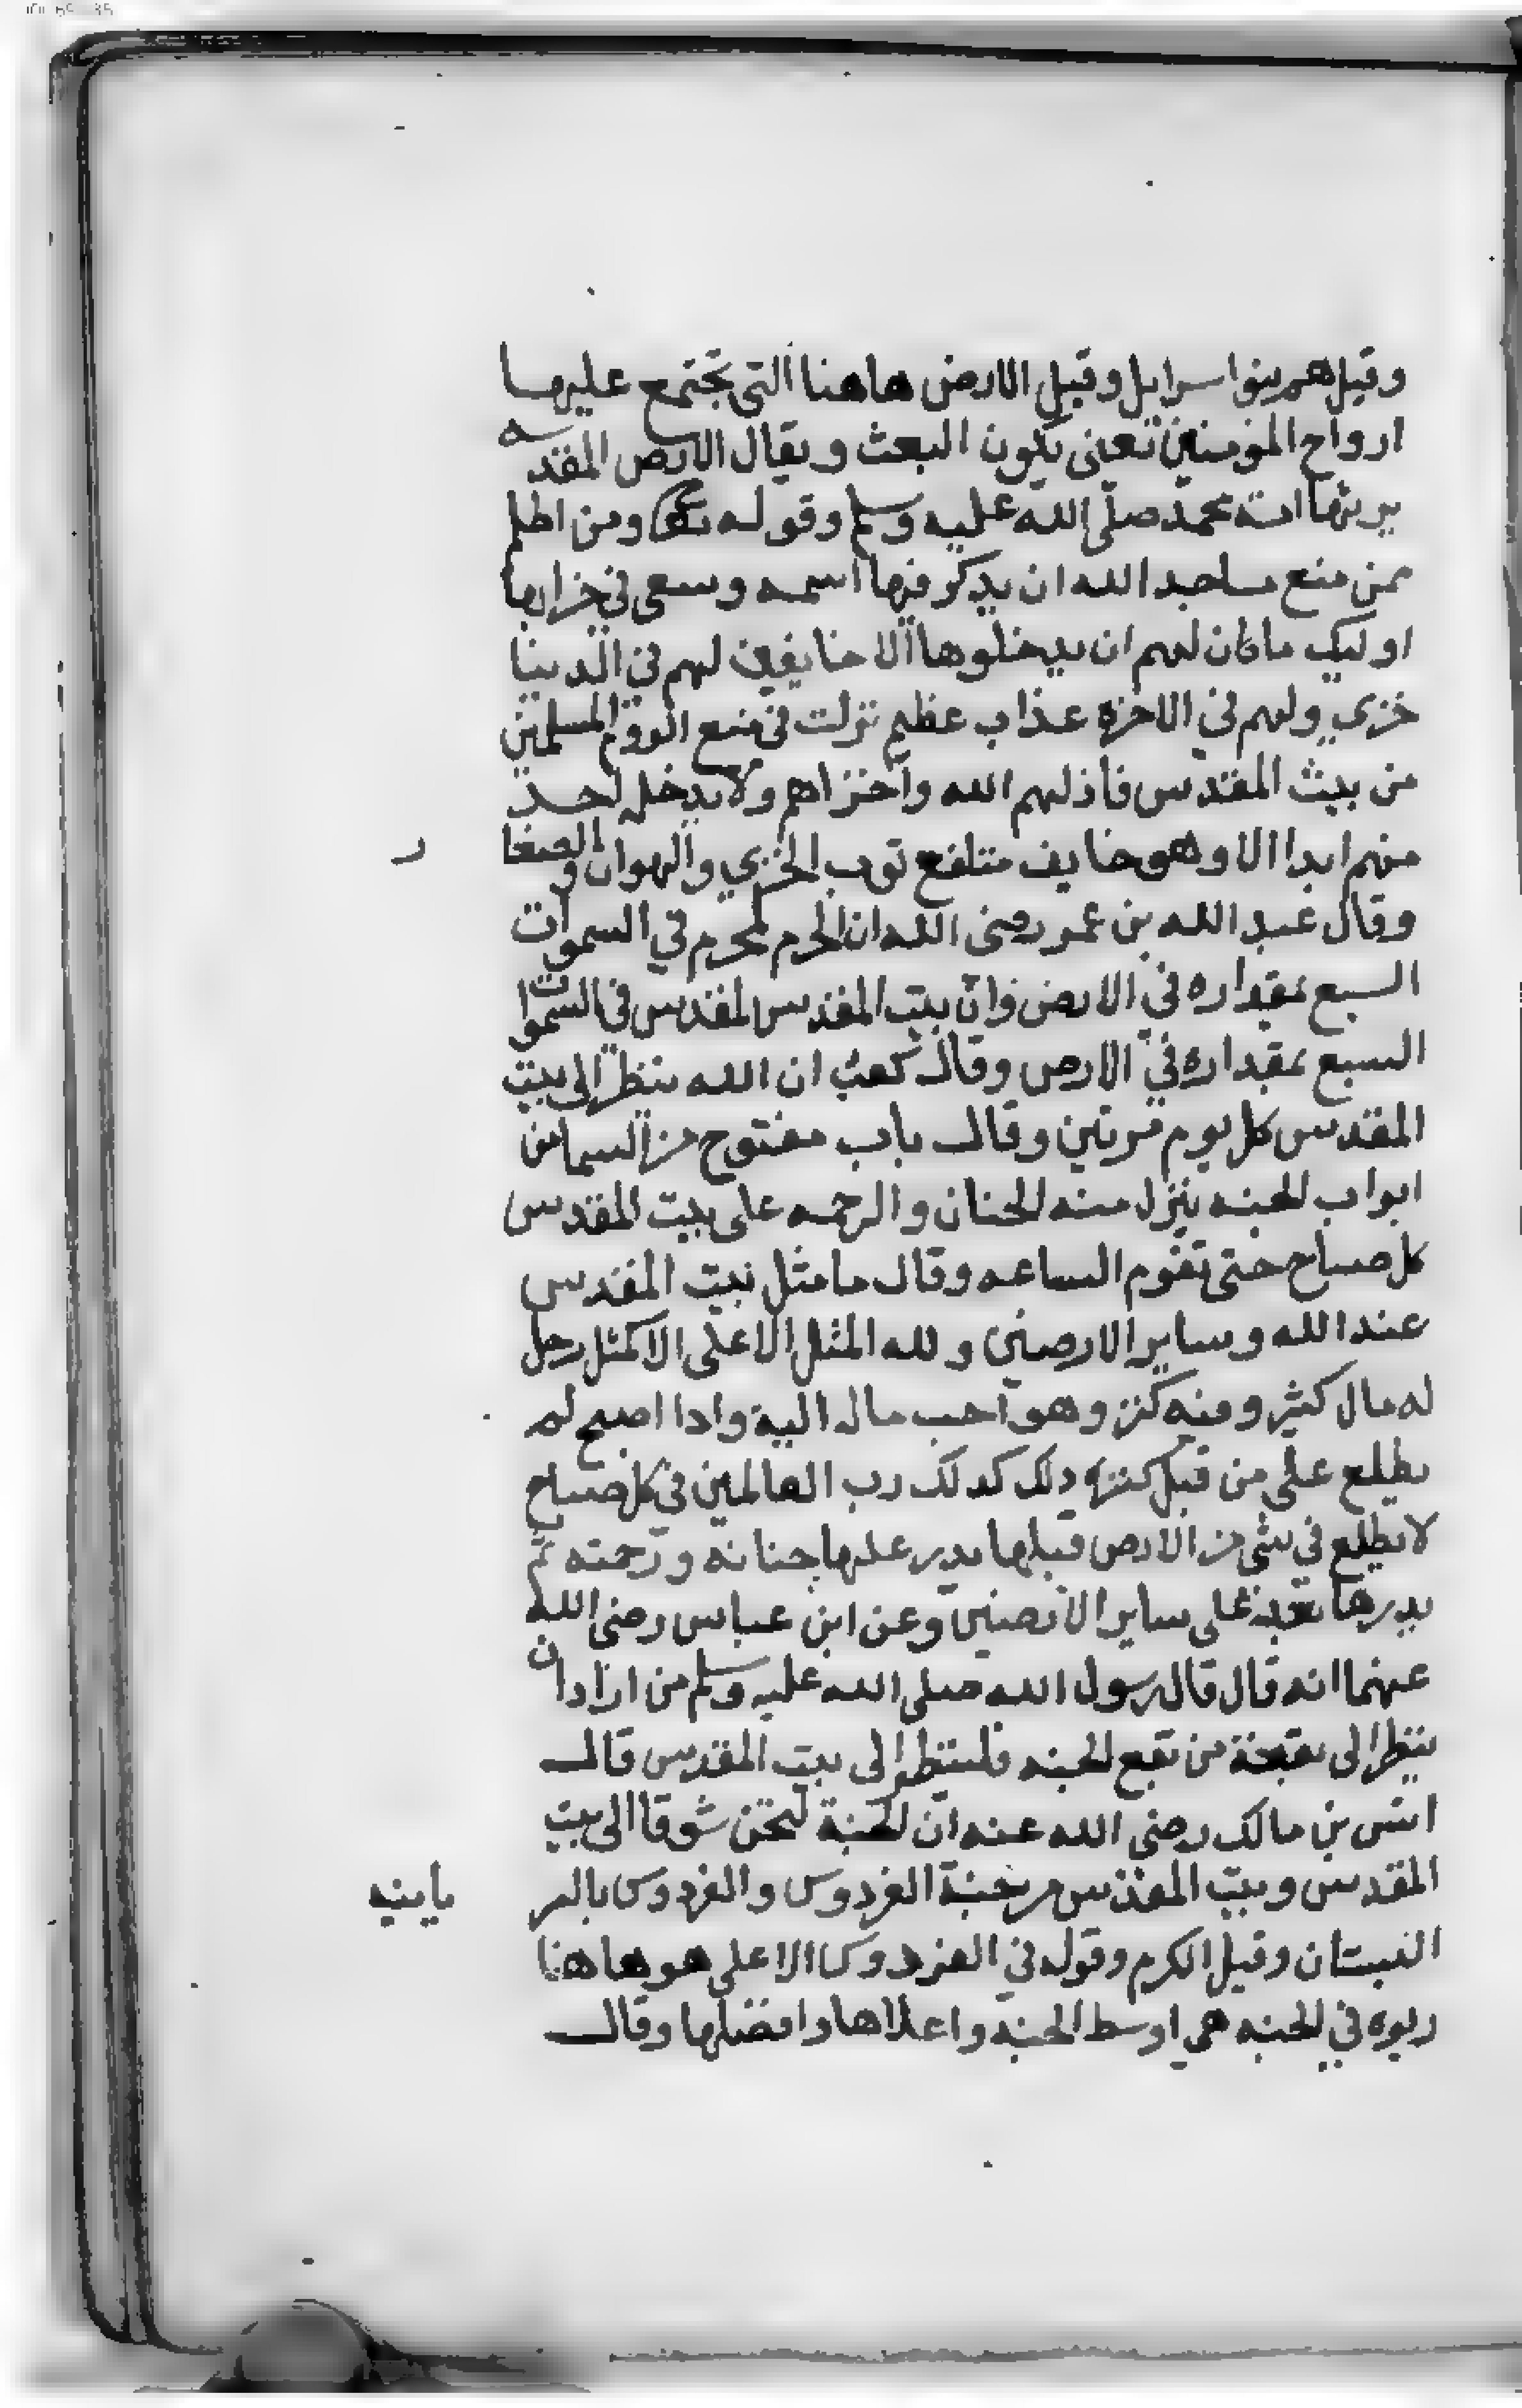 وقيل هم بنوا سرايل وقيل الارض هاهنا التى تجتمع عليها
ارواح المؤمنين تعنى يكون البعث ويقال الارض المقدسه
يرثها امة محمد صلى الله عليه وسلم وقوله تعالى ومن اظلم
ممن منع مساجد الله ان يذكر فيها اسمه وسعى في خرابها
اوليك ماكان لهم ان يدخلوها الا خايفين لهم في الدنيا
خزي ولهم في الاخرة عذاب عظيم نزلت في منع الروم المسلمين
من بيت المقدس فاذلهم الله واخزاهم ولا يدخل احد
منهم ابدا الا وهو خايف متلفع ثوب الخزي والهوان والصغار
وقال عبد الله بن عمر رضى الله ان الحرم لمحرم في السموات
السبع بمقداره في الارض وان بيت المقدس لمقدس في السموات
السبع بمقداره في الارض وقال كعب ان الله ينظر الى بيت
المقدس كل يوم مرتين وقال باب مفتوح من السما من
ابواب الجنه ينزل منه الحنان والرحمه على بيت المقدس
كل صباح حتى تقوم الساعه وقال ما مثل بيت المقدس
عند الله وساير الارضين ولله المثل الاعلى الا كمثل رجل
له مال كثير وفيه كنز وهو احب ماله اليه واذا اصبح لم
يطلع على من قبل كنزه ذلك كذلك رب العالمين في كل صباح
لا يطلع في شي من الارض قبلها يدر عليها حنانه ورحمته ثم
يدرها بعد على ساير الارضين وعن ابن عباس رضى الله
عنهما انه قال قال رسول الله صلى الله عليه وسلم من اراد ان
ينظر الى بقعة من بقع الجنه فلينظر الى بيت المقدس قال
انس بن مالك رضى الله عنه ان الجنة لتحن شوقا الى بيت
المقدس وبيت المقدس من جنة الفردوس والفردوس بالسريانيه
البستان وقيل الكرم وقوله في الفردوس الاعلى هو هاهنا
ربوه في الجنه هي اوسط الجنه واعلاها وافضلها وقال